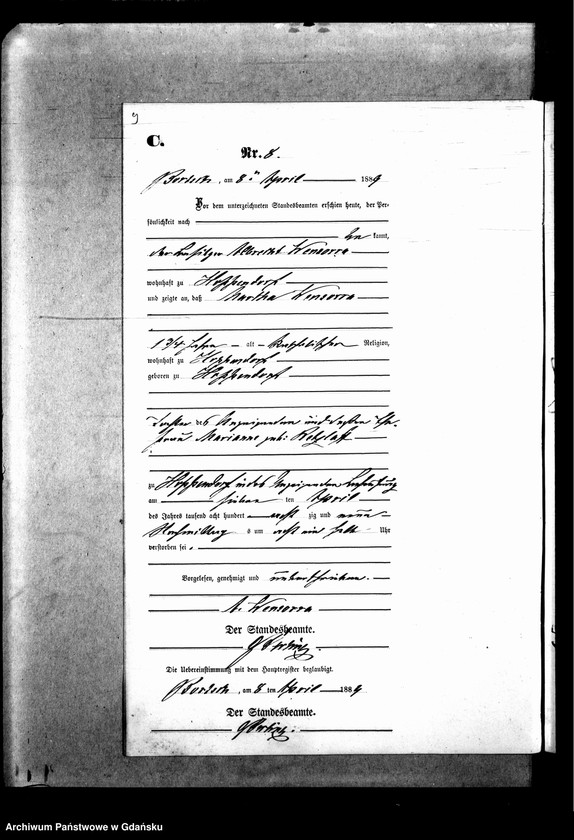 9
C.
Nr. 8.
am 8ten April 1889
Vor dem unterzeichneten Standesbeamten erschien heute, der Per-
sönlichkeit nach
be kannt,
der Besitzer Albrecht Wensorra
wohnhaft zu Hoppendorf
und zeigte an, daß Martha Wensorra
1 3/4 Jahre alt katholischer Religion,
wohnhaft zu Hoppendorf
geboren zu Hoppendorf
Tochter des Anzeigenden und dessen Ehe-
frau Marianne geb:
zu Hoppendorf in des Anzeigenden Behausung
am sieben ten April
des Jahres tausend acht hundert acht zig und neun
Nachmittag s um acht ein halb Uhr
verstorben sei.
Vorgelesen, genehmigt und unterschrieben.
A. Wensorra
Der Standesbeamte.
Die Uebereinstimmung mit dem Hauptregister beglaubigt.
am 8 ten April 1889
Der Standesbeamte.
Archiwum Państwowe w Gdańsku